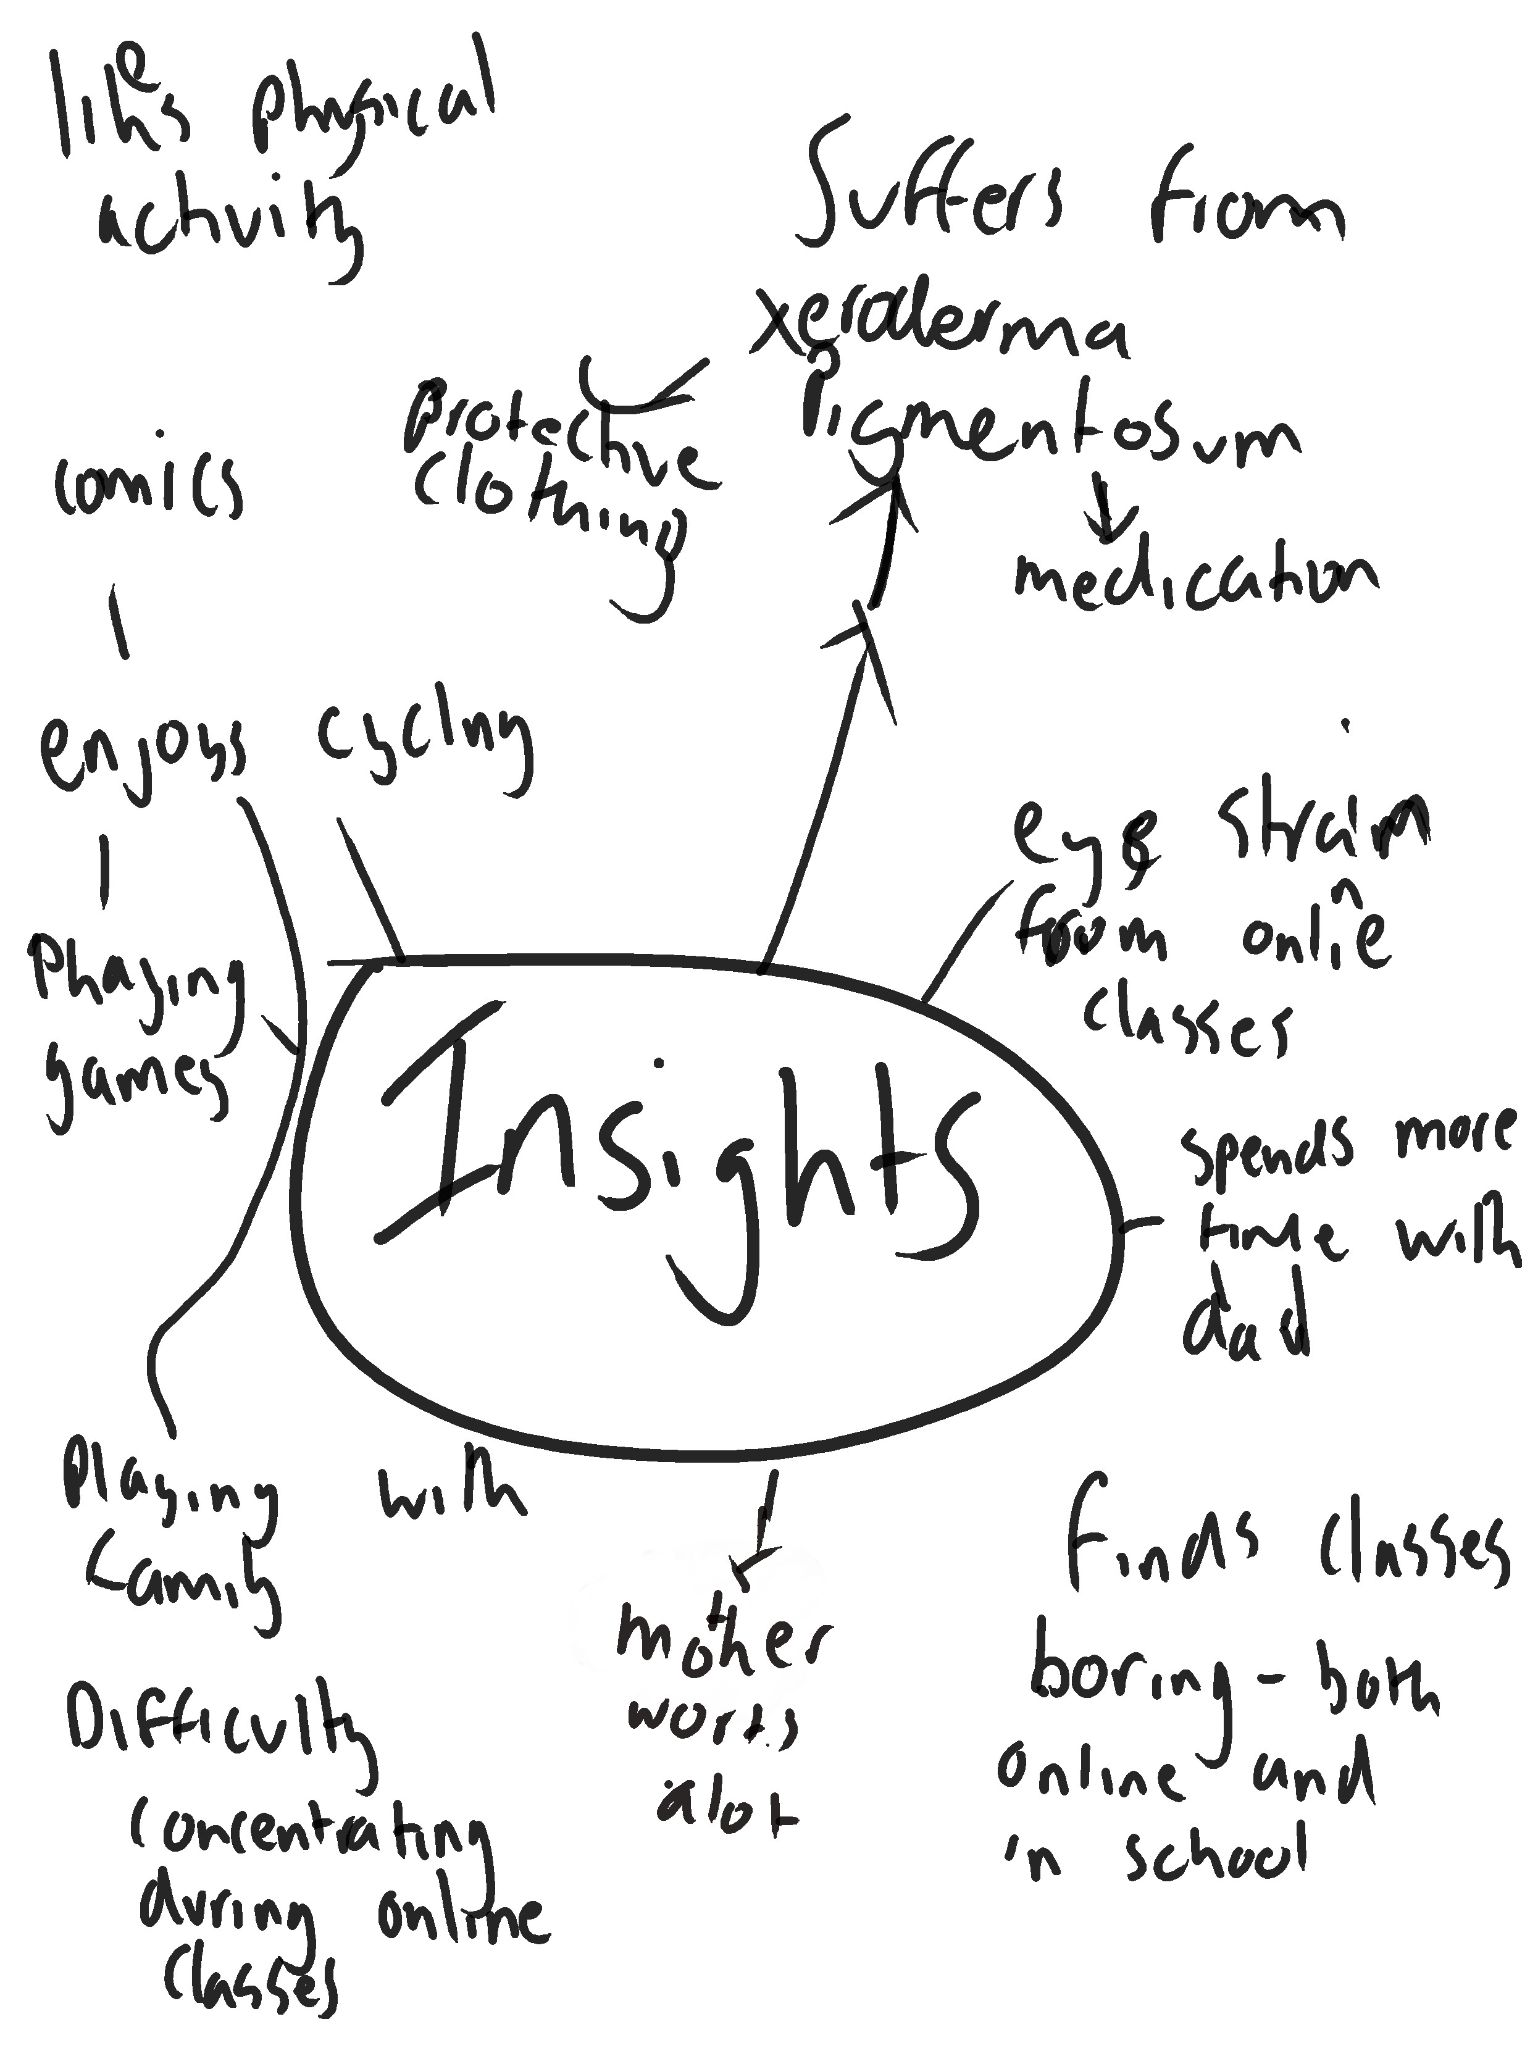 likes physical
activity
Suffers from
xeroderma
Pigmentosum
protective
clothing
medication
comics
enjoys cycling
Phaying
games
eye strain
from online
classes
Insights
spends more
time with
dad
Playing with
family
mother
works
alot
Finds classes
boring - both
online and
in school
Difficulty
concentrating
during online
classes